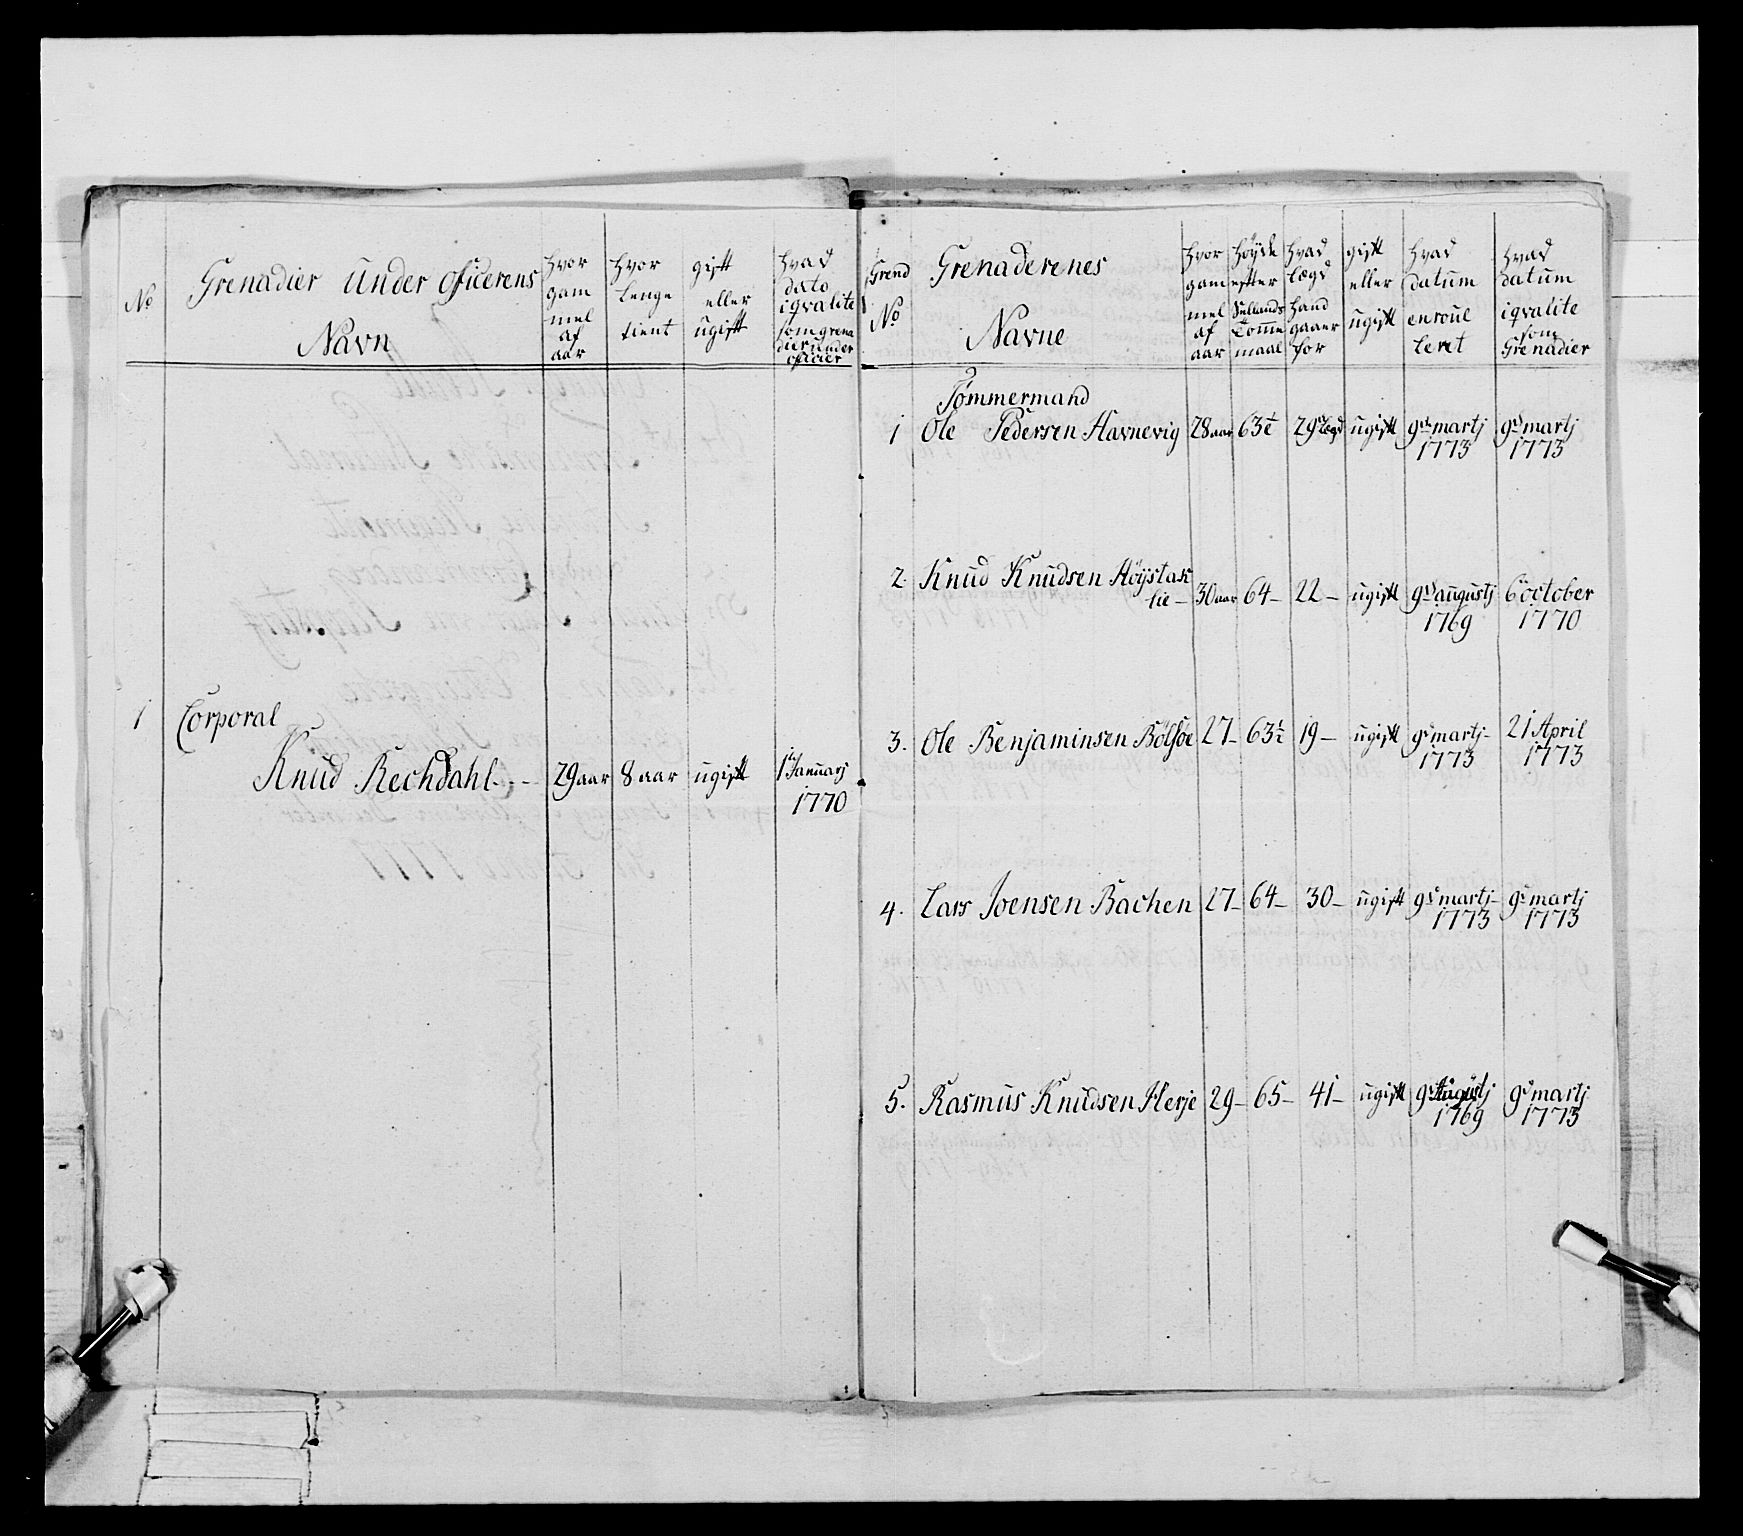 No
Grenadier Under Officerens
Navn
hvor
gam
mel
af
aar
hvor
lenge
tient
gift
eller
ugift
hvad
dato
iqvalite
som grena
dier under
oficier
1
Corporal
Knud Rechdahl
29 aar
8 aar
ugift
1 Januarj
1770
Grend
No
Grenaderenes
Navne
hvor
gam
mel
af
aar
høyde
efter
Tomme
maal
hvad
lægd
hand
gaaer
for
gift
eller
ugift
hvad
datum
enroul
leret
hvad
datum
iqvalite
som
Grenadier
Tømmermand
1 Ole Pedersen Havnevig 28 aar 63 29 lægd ugift 9de martj 9d martj
1773 1773
2. Knud Knudsen Høÿstak
lie – 30 aar 64 – 22 – ugift 9d augustj 6 october
1769 1770
3. Ole Benjaminsen Bölsöe 27 – 63½ 19 – ugift 9d martj – 21 April
1773 1773
4. Lars Joensen Bachen 27 – 64 – 30 – ugift 9d martj – 9d martj
1773 1773
5. Rasmus Knudsen Herje 29 – 65 – 41 – ugift 9d Augustj 9d martj
1769 1773